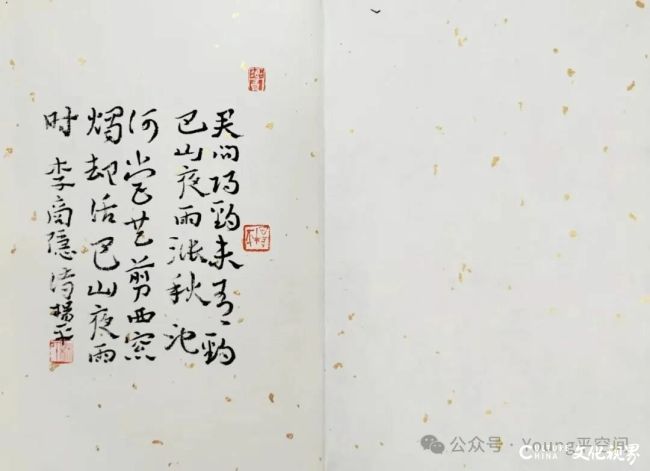 君问归期未有期
巴山夜雨涨秋池
何当共剪西窗
烛却话巴山夜雨
时 李商隐诗 杨平
公众号 · Young平空间
CHINA 文化视界